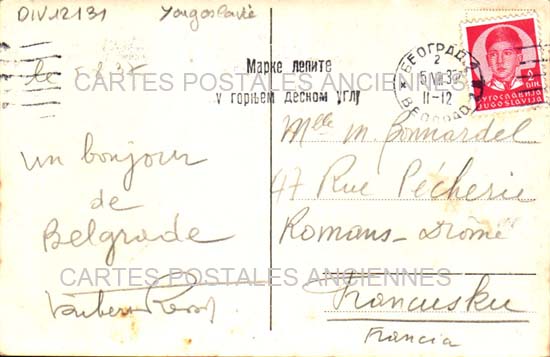 DIV12131 Yougoslavie
le
Марке лепите
у горњем десном углу
БЕОГРАД 2
11-12
БЕОГРАД 2
2 DIN.
ЈУГОСЛАВИЈА
JUGOSLAVIJA
CARTES POSTALES ANCIENNES
un bonjour
de
Belgrade
Mlle M. Bonnardel
47 Rue Pécherie
Romans-Drôme
CARTES POSTALES ANCIENNES
Francusku
Francia